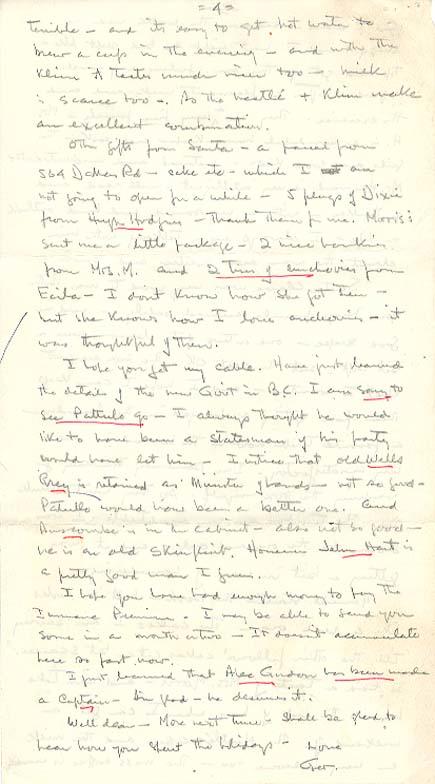 = 4 =
terrible - and it's easy to get hot water to
brew a cup in the evening - and with the
Klim it tastes much nicer too - milk
is scarce too -. So the Nestlé + Klim make
an excellent combination.
Other gifts from Santa - a parcel from
564 Dallas Rd - cake etc - which I am
not going to open for a while - 5 plugs of Dixie
from Hugh Hodgins - Thank them for me. Morris's
sent me a little package - 2 nice hankies
from Mrs. M. and 2 tins of anchovies from
Ecila - I don't know how she got them -
but she knows how I love anchovies - it
was thoughtful of them.
I hope you got my cable. Have just learned
the details of the new Gov't in B.C. I am sorry to
see Pattulo go - I always thought he would
like to have been a statesman if his party
would have let him - I notice that old Wells
Grey is retained as Minister of Lands - not so good -
Pattulo would have been a better one. And
Anscombe is in the cabinet - also not so good -
he is an old skinflint. However John Hart is
a pretty good man I guess.
I hope you have had enough money to pay the
Insurance Premium. I may be able to send you
some in a month or two - It doesn't accumulate
here so fast now.
I just learned that Alec Gordon has been made
a Captain - I'm glad - he deserves it.
Well dear - More next time - Shall be glad to
hear how you spent the holidays - Love